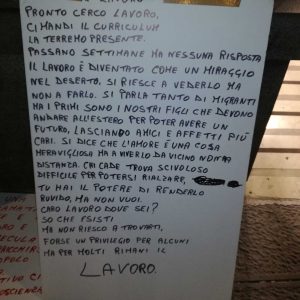 PRONTO CERCO LAVORO,
CI MANDI IL CURRICULUM
LA TERREMO PRESENTE.
PASSANO SETTIMANE MA NESSUNA RISPOSTA
IL LAVORO È DIVENTATO COME UN MIRAGGIO
NEL DESERTO. SI RIESCE A VEDERLO MA
NON A FARLO. SI PARLA TANTO DI MIGRANTI
MA I PRIMI SONO I NOSTRI FIGLI CHE DEVONO
ANDARE ALL'ESTERO PER POTER AVERE UN
FUTURO, LASCIANDO AMICI E AFFETTI PIÙ
CARI. SI DICE CHE L'AMORE È UNA COSA
MERAVIGLIOSA MA A VIVERLO DA VICINO NON A
DISTANZA. CHI CADE TROVA SCIVOLOSO
DIFFICILE PER POTERSI RIALZARE,
TU HAI IL POTERE DI RENDERLO
RUVIDO, MA NON VUOI.
CARO LAVORO DOVE SEI?
SO CHE ESISTI
MA NON RIESCO A TROVARTI,
FORSE UN PRIVILEGIO PER ALCUNI
MA PER MOLTI RIMANI IL
LAVORO.
UNA
E
POPOLO
CI